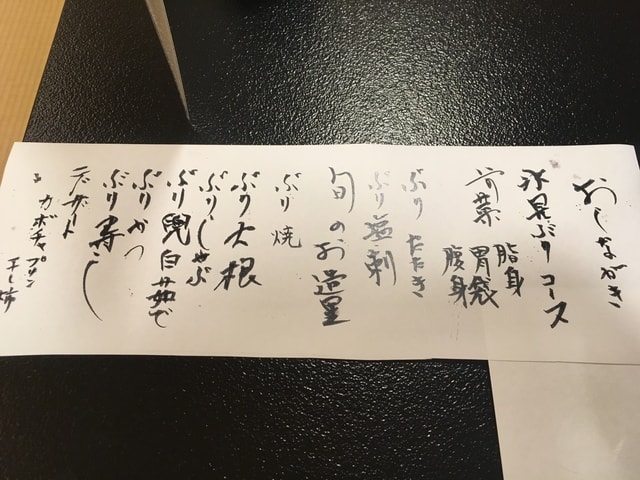 おしながき
氷見ぶりコース
前菜 脂身
胃袋
腹身
ぶりたたき
ぶり塩刺
旬のお造里
ぶり焼
ぶり大根
ぶりしゃぶ
ぶり兜白茹で
ぶりかつ
ぶり寿し
デザート
カボチャプリン
干し柿